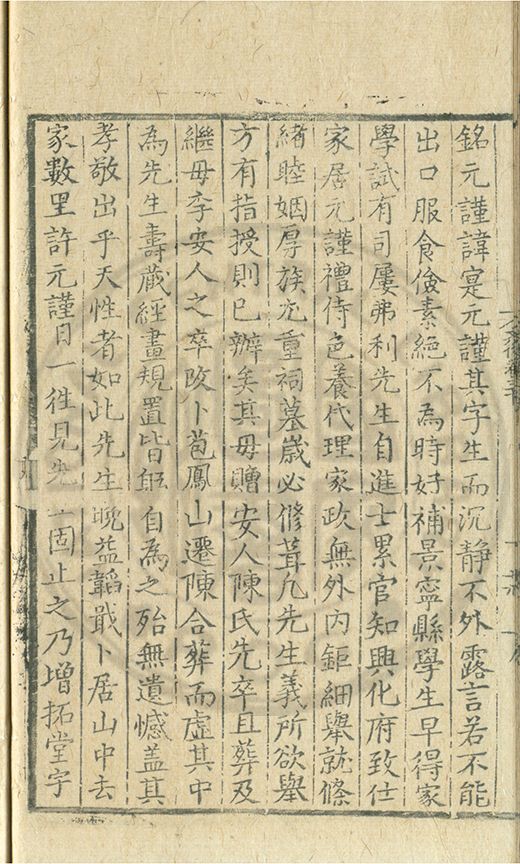 銘元謹諱寔元謹其字生而沉静不外露言若不能
出口服食儉素絕不為時好補景寧縣學生早得家
學試有司屢弗利先生自進士累官知興化府致仕
家居元謹禮侍色養代理家政無外內鉅細舉就條
緒睦姻厚族尤重祠墓歲必修葺凡先生義所欲舉
方有指授則已辦矣其母贈安人陳氏先卒且葬及
繼母李安人之卒改卜苞鳳山遷陳合葬而虛其中
為先生壽藏經畫規置皆躬自為之殆無遺憾盖其
孝敬出乎天性者如此先生晚益韜戢卜居山中去
家數里許元謹日一徃見先生固止之乃增拓堂宇